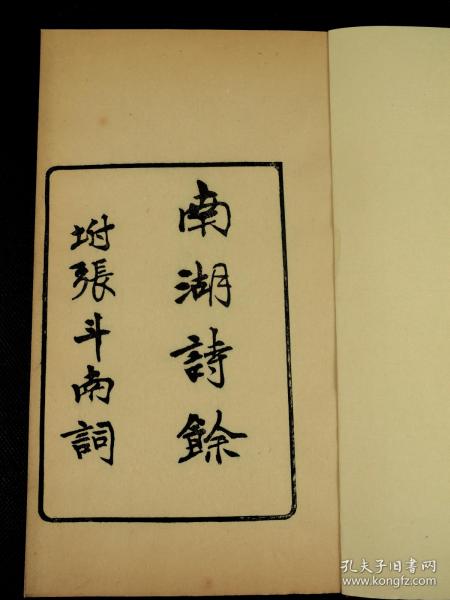 南湖詩餘
坿張斗南詞
孔夫子旧书网
www.kongfz.com